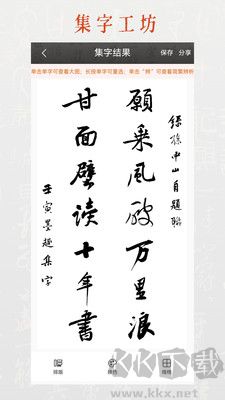 集字工坊
集字结果
保存 分享
单击单字可查看大图，长按单字可重选，单击“辨”可查看简繁辨析
錄孫中山自題聯
願乘風破万里浪
甘面壁读十年書
壬寅墨趣集字
排版
背景
KK下载
www.kkx.net